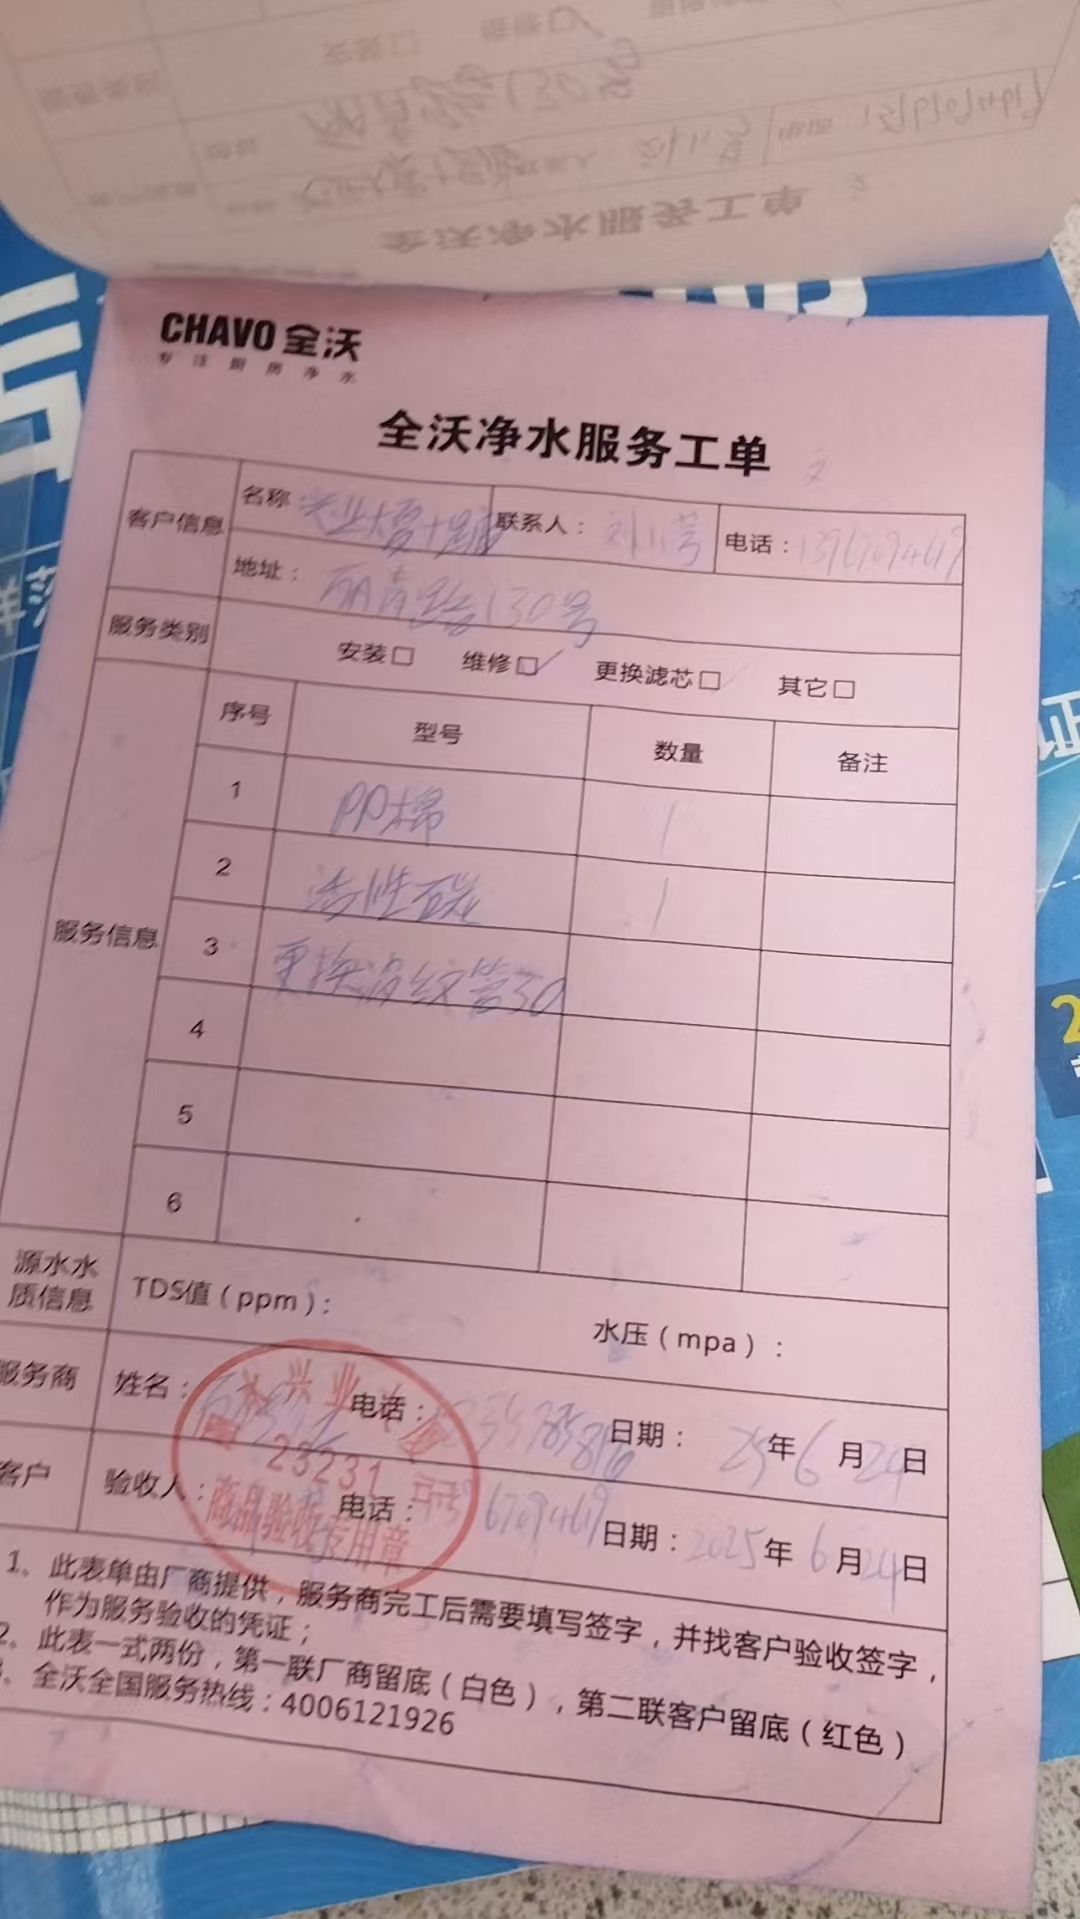 CHAVO 全沃
专注厨房净水
全沃净水服务工单
客户信息
名称：兴业大厦十
联系人：
电话：13967094619
地址：丽青路130号
服务类别
安装□ 维修□✓ 更换滤芯□ 其它□
服务信息
序号 型号 数量 备注
1 PP棉 1
2 活性碳 1
3 更换波纹管30
4
5
6
源水水质信息
TDS值（ppm）：
水压（mpa）：
服务商 姓名： 电话： 日期：25年6月24日
客户 验收人： 电话： 67094619 日期：2025年6月24日
兴业
23231
商品验收专用章
1、此表单由厂商提供，服务商完工后需要填写签字，并找客户验收签字，
作为服务验收的凭证；
2、此表一式两份，第一联厂商留底（白色），第二联客户留底（红色）
3、全沃全国服务热线：4006121926